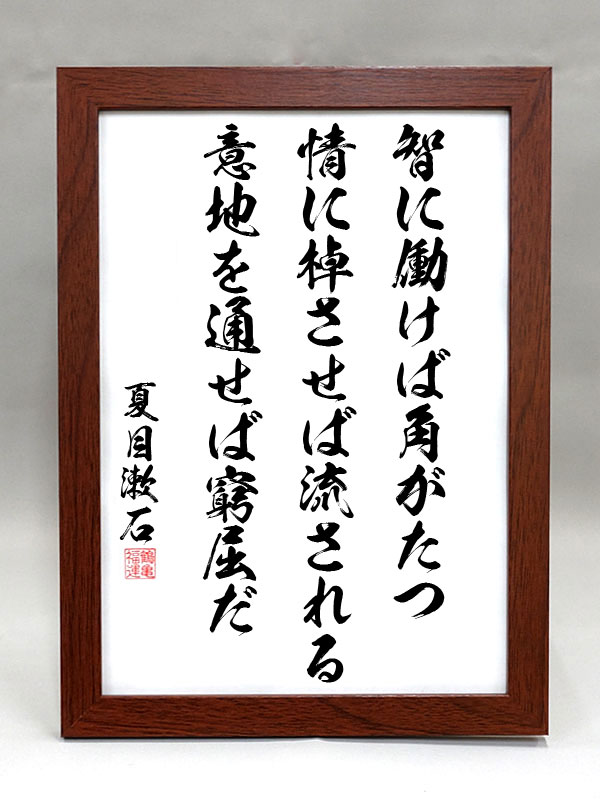 智に働けば角がたつ
情に棹させば流される
意地を通せば窮屈だ
夏目漱石
鶴亀
福運